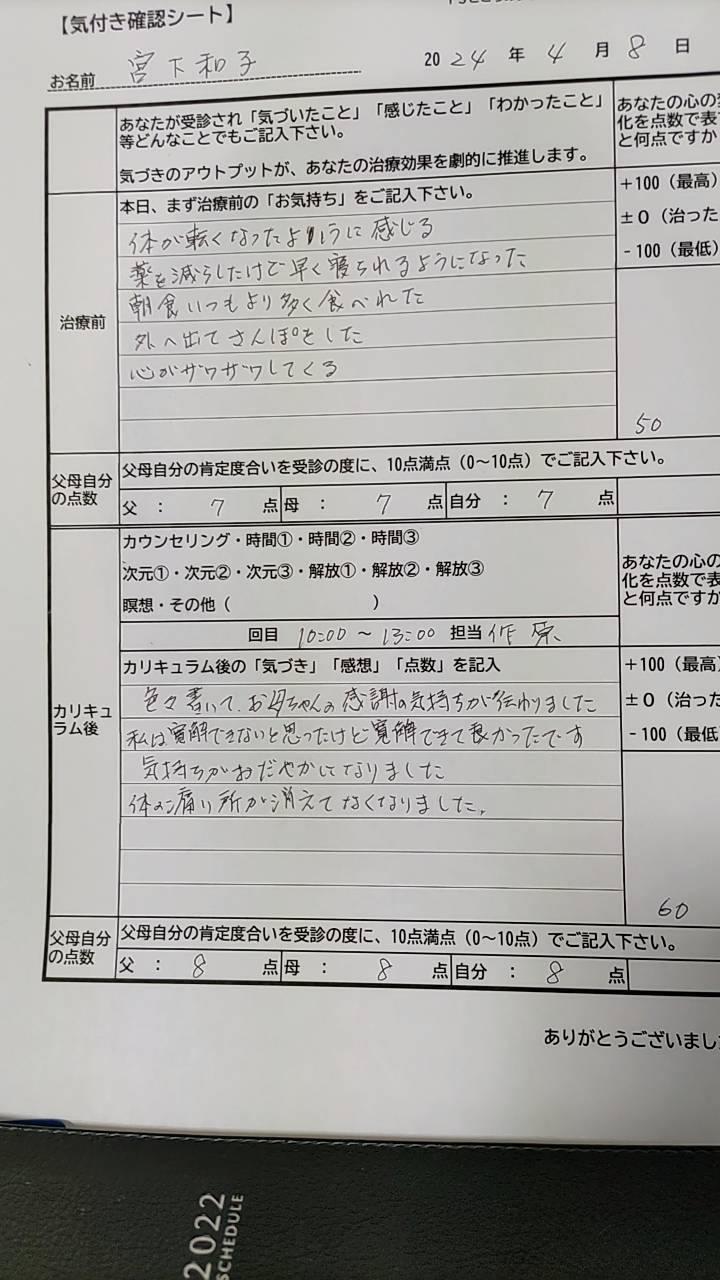 【気付き確認シート】
お名前 宮下和子 2024年4月8日
あなたが受診され「気づいたこと」「感じたこと」「わかったこと」
等どんなことでもご記入下さい。
気づきのアウトプットが、あなたの治療効果を劇的に推進します。
あなたの心の
化を点数で表
と何点ですか
治療前
本日、まず治療前の「お気持ち」をご記入下さい。
+100（最高）
±0（治った
-100（最低）
体が転くなったように感じる
薬を減らしたけど早く寝られるようになった
朝食いつもより多く食べれた
外へ出てさんぽをした
心がザワザワしてくる
50
父母自分
の点数
父母自分の肯定度合いを受診の度に、10点満点（0～10点）でご記入下さい。
父： 7 点 母： 7 点 自分： 7 点
カリキュ
ラム後
カウンセリング・時間①・時間②・時間③
次元①・次元②・次元③・解放①・解放②・解放③
瞑想・その他（ ）
あなたの心の
化を点数で表
と何点ですか
回目 10:00～13:00 担当 作原
カリキュラム後の「気づき」「感想」「点数」を記入
+100（最高）
±0（治った
-100（最低）
色々書いて、お母ちゃんの感謝の気持ちが伝わりました
私は寛解できないと思ったけど寛解できて良かったです
気持ちがおだやかになりました
体の痛い所が消えてなくなりました。
60
父母自分
の点数
父母自分の肯定度合いを受診の度に、10点満点（0～10点）でご記入下さい。
父： 8 点 母： 8 点 自分： 8 点
ありがとうございまし
2022
SCHEDULE